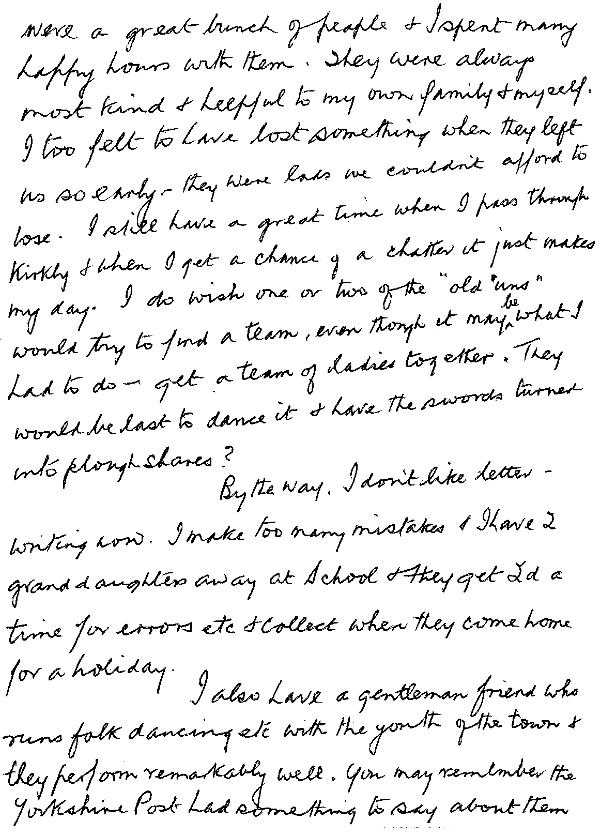 were a great bunch of people & I spent many
happy hours with them. They were always
most kind & helpful to my own family & myself.
I too felt to have lost something when they left
us so early – they were lads we couldn't afford to
lose. I still have a great time when I pass through
Kirkby & when I get a chance of a chatter it just makes
my day. I do wish one or two of the "old 'uns"
would try to find a team, even though it may be what I
had to do – get a team of ladies together. They
would be last to dance it & have the swords turned
into plough shares?
By the way. I don't like letter-
writing now. I make too many mistakes & I have 2
grand daughters away at School & they get 2d a
time for errors etc & collect when they come home
for a holiday.
I also have a gentleman friend who
runs folk dancing etc with the youth of the town &
they perform remarkably well. You may remember the
Yorkshire Post had something to say about them